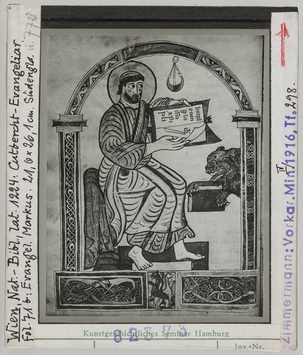 Wien Nat-Bibl, lat. 1224: Cutbercht-Evangeliar
fol. 71b: Evangel. Markus. 21,6 x 26,1 cm. Südengld. u. 770
Zimmermann: Vorkar. Min/1916, Tf. 298.
Kunstgeschichtliches Seminar Hamburg
Inv.-Nr.